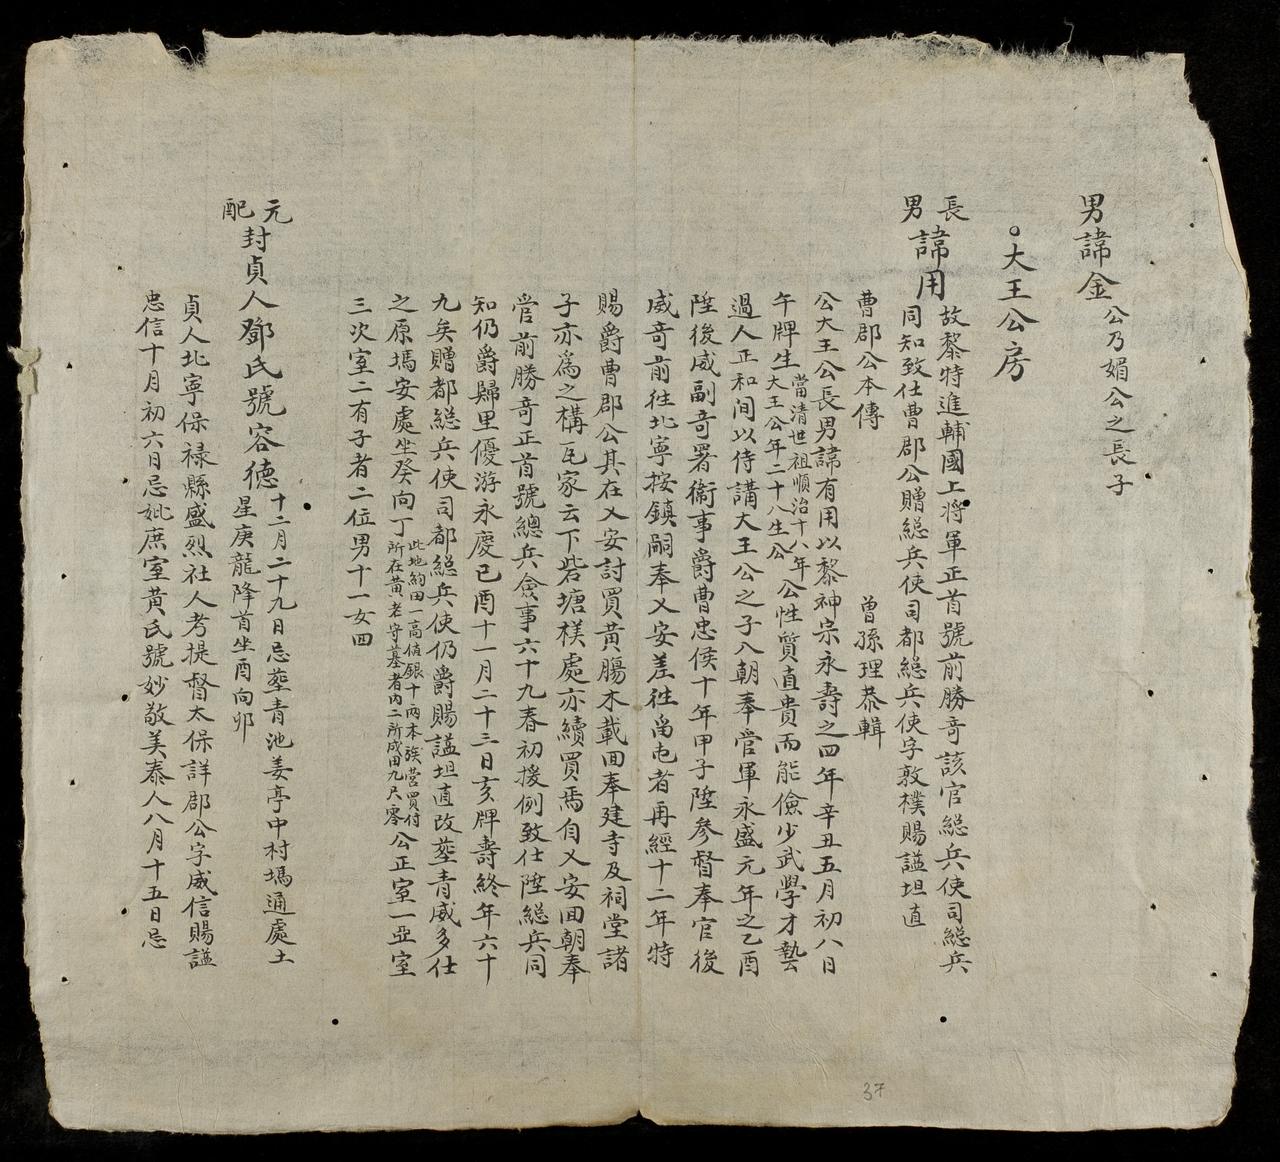 男諱金公乃媚公之長子
。大王公房
長男諱用故黎特進輔國上將軍正首號前勝奇該官総兵使司総兵
同知致仕曹郡公贈総兵使司都総兵使字敦樸賜謚坦直
曹郡公本傳 曾孫理恭輯
公大王公長男諱有用以黎神宗永壽之四年辛丑五月初八日
午牌生當清世祖順治十八年大王公年二十八生公公性質直貴而能儉少武學才藝
過人正和间以侍講大王公之子入朝奉官軍永盛元年之乙酉
陞後威副奇署衞事爵曹忠侯十年甲子陞參督奉官後
威奇前徃北寧按鎮嗣奉乂安差徃畄屯者再經十二年特
賜爵曹郡公其在乂安討買黄膓木載回奉建寺及祠堂諸
子亦爲之構瓦家云下砦塘樸處亦續買焉自乂安回朝奉
官前勝奇正首號總兵僉事六十九春初援例致仕陞総兵同
知仍爵歸里優游永慶已酉十一月二十三日亥牌壽終年六十
九矣贈都総兵使司都総兵使仍爵賜謚坦直改塟青威多仕
之原塢安處坐癸向丁此地約田一高値銀十両本族营買付所在黄老守墓者内二所成田九尺零公正室一亞室
三次室二有子者二位男十一女四
元配封貞人鄧氏號容德十二月二十九日忌塟青池姜亭中村塢通處土
星庚龍降首坐酉向卯
貞人北寧保禄縣盛烈社人考提督太保詳郡公字威信賜謚
忠信十月初六日忌妣庶室黄氏號妙敬美泰人八月十五日忌
37